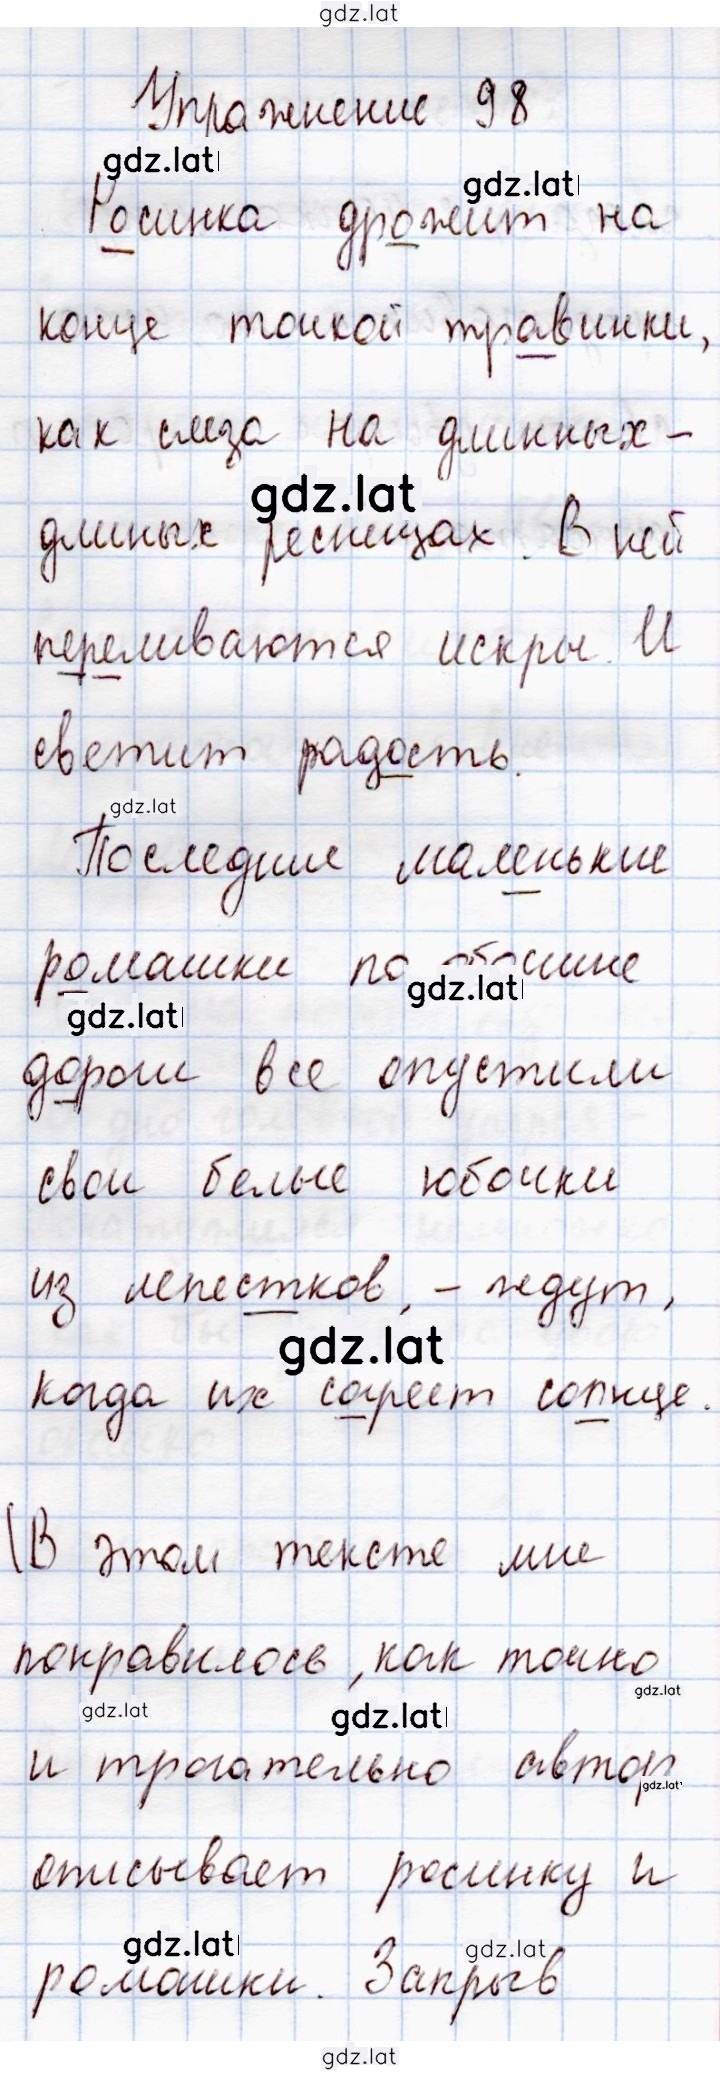 gdz.lat
Упражнение 98
gdz.lat
gdz.lat
Росинка дрожит на
конце тонкой травинки,
как слеза на длинных-
gdz.lat
длиных ресницах. В ней
переливаются искры. И
светит радость.
gdz.lat
Последние маленькие
ромашки по обочине
gdz.lat
gdz.lat
дороги все опустили
свои белые юбочки
из лепестков, - ждут,
gdz.lat
когда их согреет солнце.
В этом тексте мне
понравилось, как точно
gdz.lat
gdz.lat
gdz.lat
и трогательно автор
gdz.lat
описывает росинку и
gdz.lat
gdz.lat
ромашки. Закрыв
gdz.lat